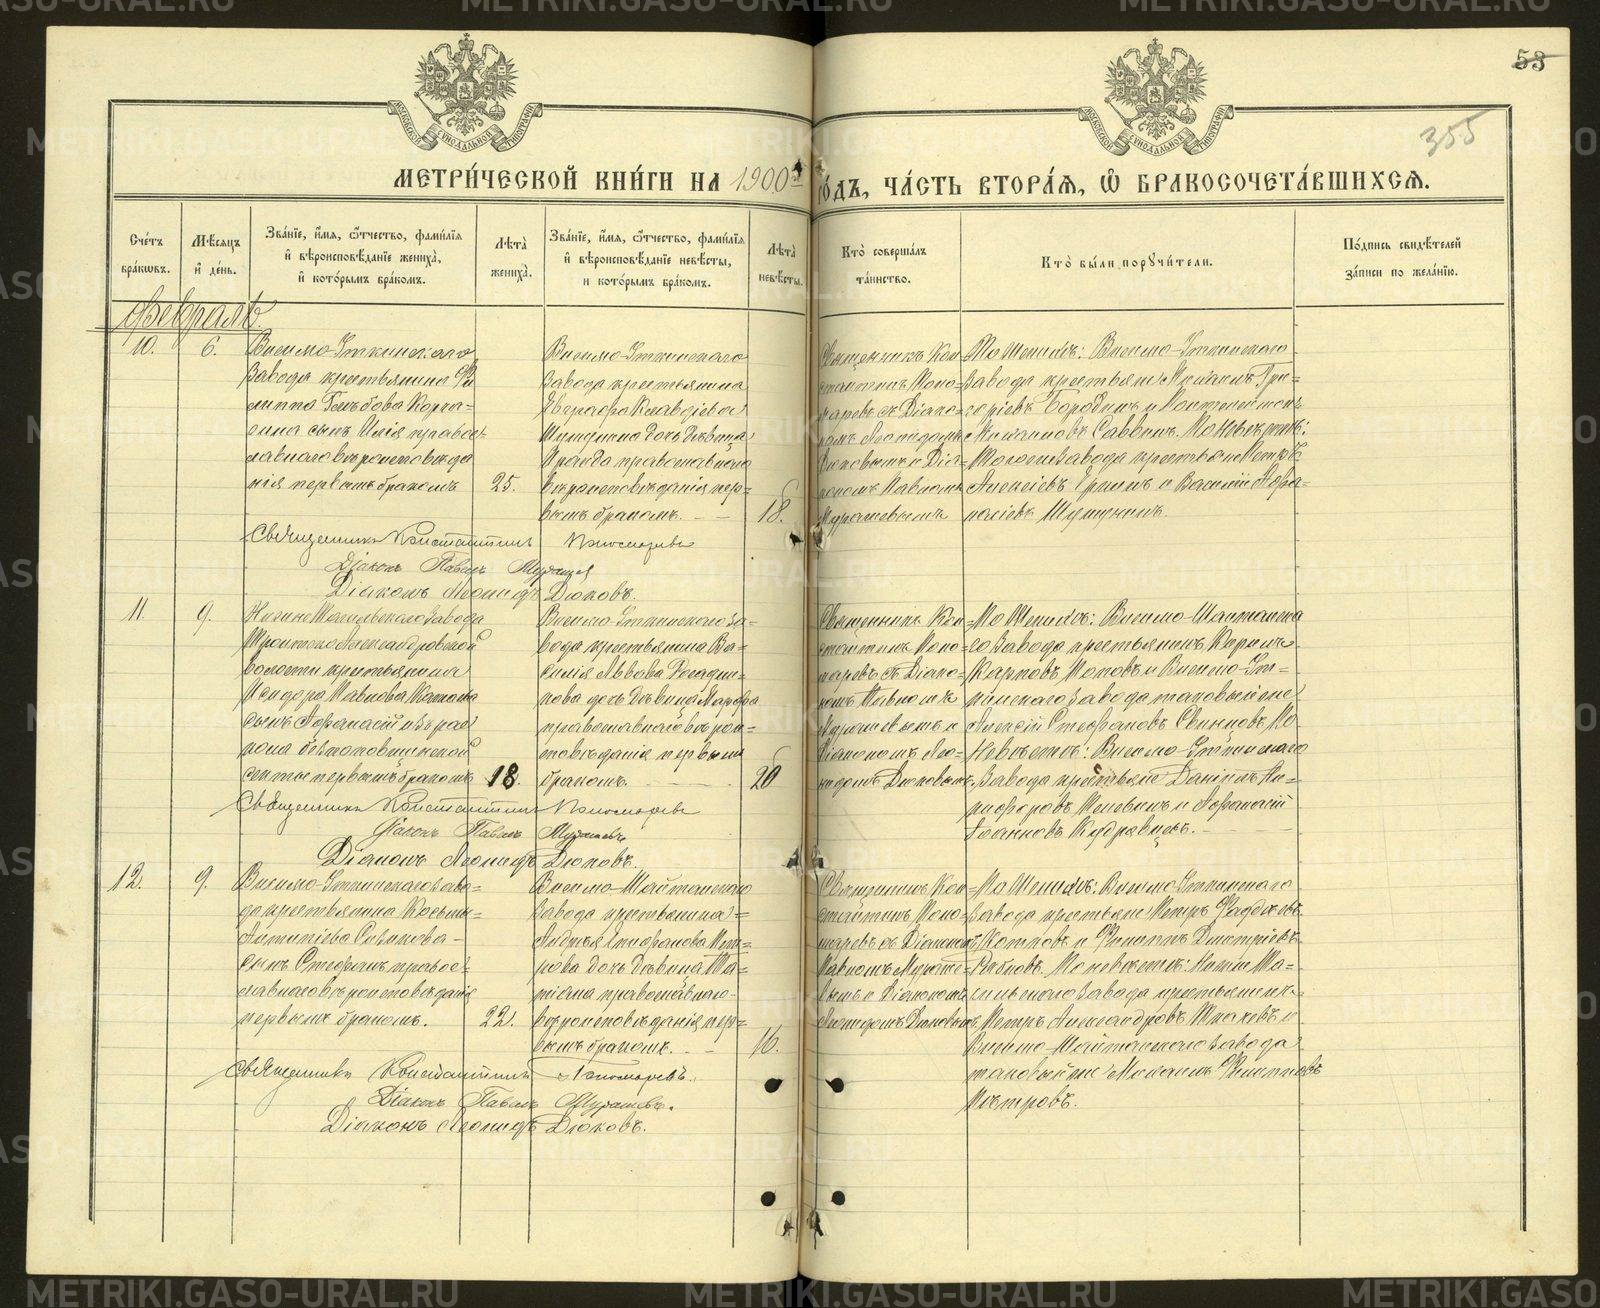 53
355
МЕТРИ́ЧЕСКОЙ КНИ́ГИ НА 1900
ГО́ДЪ, ЧА́СТЬ ВТОРА́Я, Ѡ҆ БРАКОСОЧЕТА́ВШИХСЯ.
Сче́тъ бра́кѡвъ.
Мѣ́сяцъ и҆ де́нь.
Зва́нїе, и҆́мя, ѻ҆́тчество, фами́лїя и҆ вѣроисповѣ́данїе жениха̀, и҆ кото́рымъ бра́комъ.
Лѣта̀ жениха̀.
Зва́нїе, и҆́мя, ѻ҆́тчество, фами́лїя и҆ вѣроисповѣ́данїе невѣ́сты, и҆ кото́рымъ бра́комъ.
Лѣта̀ невѣ́сты.
Кто̀ соверша́лъ та́инство.
Кто̀ бы́ли поручи́тели.
По́дпись свидѣ́телей за́писи по жела́нїю.
Февраль.
10.
6.
Висимо-Уткинскаго
завода крестьянина Фи
липпа Глѣбова
сынъ Илія правос-
лавнаго вѣроисповѣда
нія первымъ бракомъ
25.
Висимо-Уткинскаго
завода крестьянина
дочь дѣвица
православнаго
вѣроисповѣданія пер-
вымъ бракомъ.
18.
Священникъ Кон
стантинъ Поно-
маревъ съ Діако-
номъ Леонидомъ
Дюковымъ и Діа-
кономъ Павломъ
Мурашевымъ
По женихѣ: Висимо-Уткинскаго
завода крестьяне Михаилъ Гри-
горіевъ Бородинъ и
Саввинъ. По невѣстѣ:
завода крестьяне Петръ
Алексіевъ и Василій
Шушунинъ.
Священникъ Константинъ Пономаревъ
Діаконъ Павелъ Мурашев
Діаконъ Леонидъ Дюковъ.
11.
9.
Нижне-Тагильскаго завода
Троицко-Александровской
волости крестьянина
Исидора Павлова
сынъ Афанасій
секты первымъ бракомъ
18.
Висимо-Уткинскаго за-
вода крестьянина Ва-
силія Львова
дочь дѣвица Марфа
православнаго вѣрои-
сповѣданія первымъ
бракомъ.
20
Священникъ Кон
стантинъ Поно-
маревъ съ Діако-
номъ Павломъ
Мурашевымъ и
Діакономъ Лео-
нидомъ Дюковымъ
По женихѣ: Висимо-Шайтанска
го завода крестьянинъ
Карповъ Поповъ и Висимо-Ут-
кинскаго завода таковый же
Алексій Стефановъ По
невѣстѣ: Висимо-Уткинскаго
завода крестьяне Даніилъ Ни-
кифоровъ и Афанасій
Іоанновъ Кудрявцевъ.
Священникъ Константинъ Пономаревъ
Діаконъ Павелъ Мурашевъ
Діаконъ Леонидъ Дюковъ.
12.
9.
Висимо-Уткинскаго заво-
да крестьянина Косьмы
Антипіева
сынъ Стефанъ правос-
лавнаго вѣроисповѣданія
первымъ бракомъ.
22.
Висимо-Шайтанскаго
завода крестьянина
Андрея Епифанова Пет-
рова дочь дѣвица Та-
тіана православнаго
вѣроисповѣданія пер-
вымъ бракомъ.
16.
Священникъ Кон
стантинъ Поно-
маревъ съ Діакономъ
Павломъ Мураше-
вымъ и Діакономъ
Леонидомъ Дюковымъ
По женихѣ: Висимо-Уткинскаго
завода крестьяне Петръ Фаддѣевъ
и Филиппъ Дмитріевъ
По невѣстѣ: Нижне-Та-
гильскаго завода крестьянинъ
Петръ Александровъ и
Висимо-Шайтанскаго завода
таковый же Михаилъ Филипповъ
Петровъ.
Священникъ Константинъ Пономаревъ.
Діаконъ Павелъ Мурашевъ.
Діаконъ Леонидъ Дюковъ.
METRIKI.GASO-URAL.RU